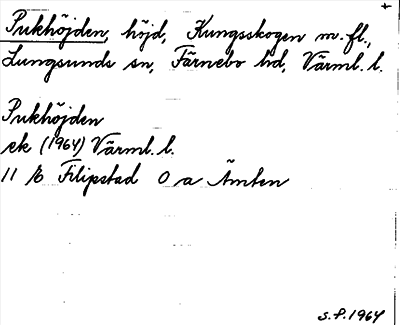 +
Pukhöjden, höjd, Kungsskogen m. fl.,
Lungsunds sn, Färnebo hd, Värml. l.
Pukhöjden
ek (1964) Värml. l.
11 E Filipstad 0 a Ämten
S.P. 1964